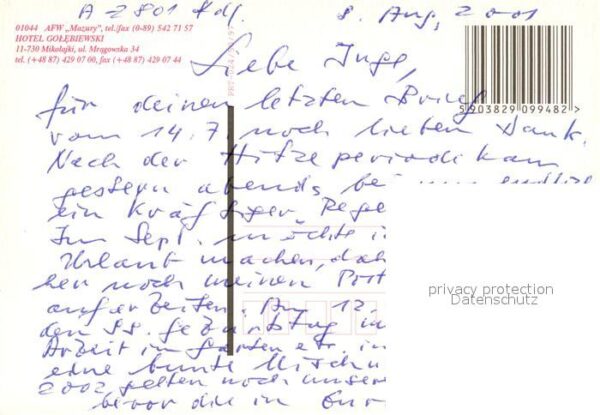 A 2801 Kdf. 8. Aug, 2001
01044 AFW „Mazury”, tel./fax (0-89) 542 71 57
HOTEL GOŁĘBIEWSKI
11-730 Mikołajki, ul. Mrągowska 34
tel. (+48 87) 429 07 00, fax (+48 87) 429 07 44
Liebe Inge,
für deinen letzten Brief
vom 14.7. noch lieben Dank.
Nach der Hitzeperiode kam
gestern abends bei
ein kräftiger Rege
Im Sept. möchte i
Urlaub machen, dah
her noch meinen Post
aufarbeiten. Aug 12.
den 55. Geburtstag in
Arbeit im Garten etc. in
eine bunte Mischu
2002 gelten noch unser
bevor die in Eur
5 903829 099482 >
privacy protection
Datenschutz